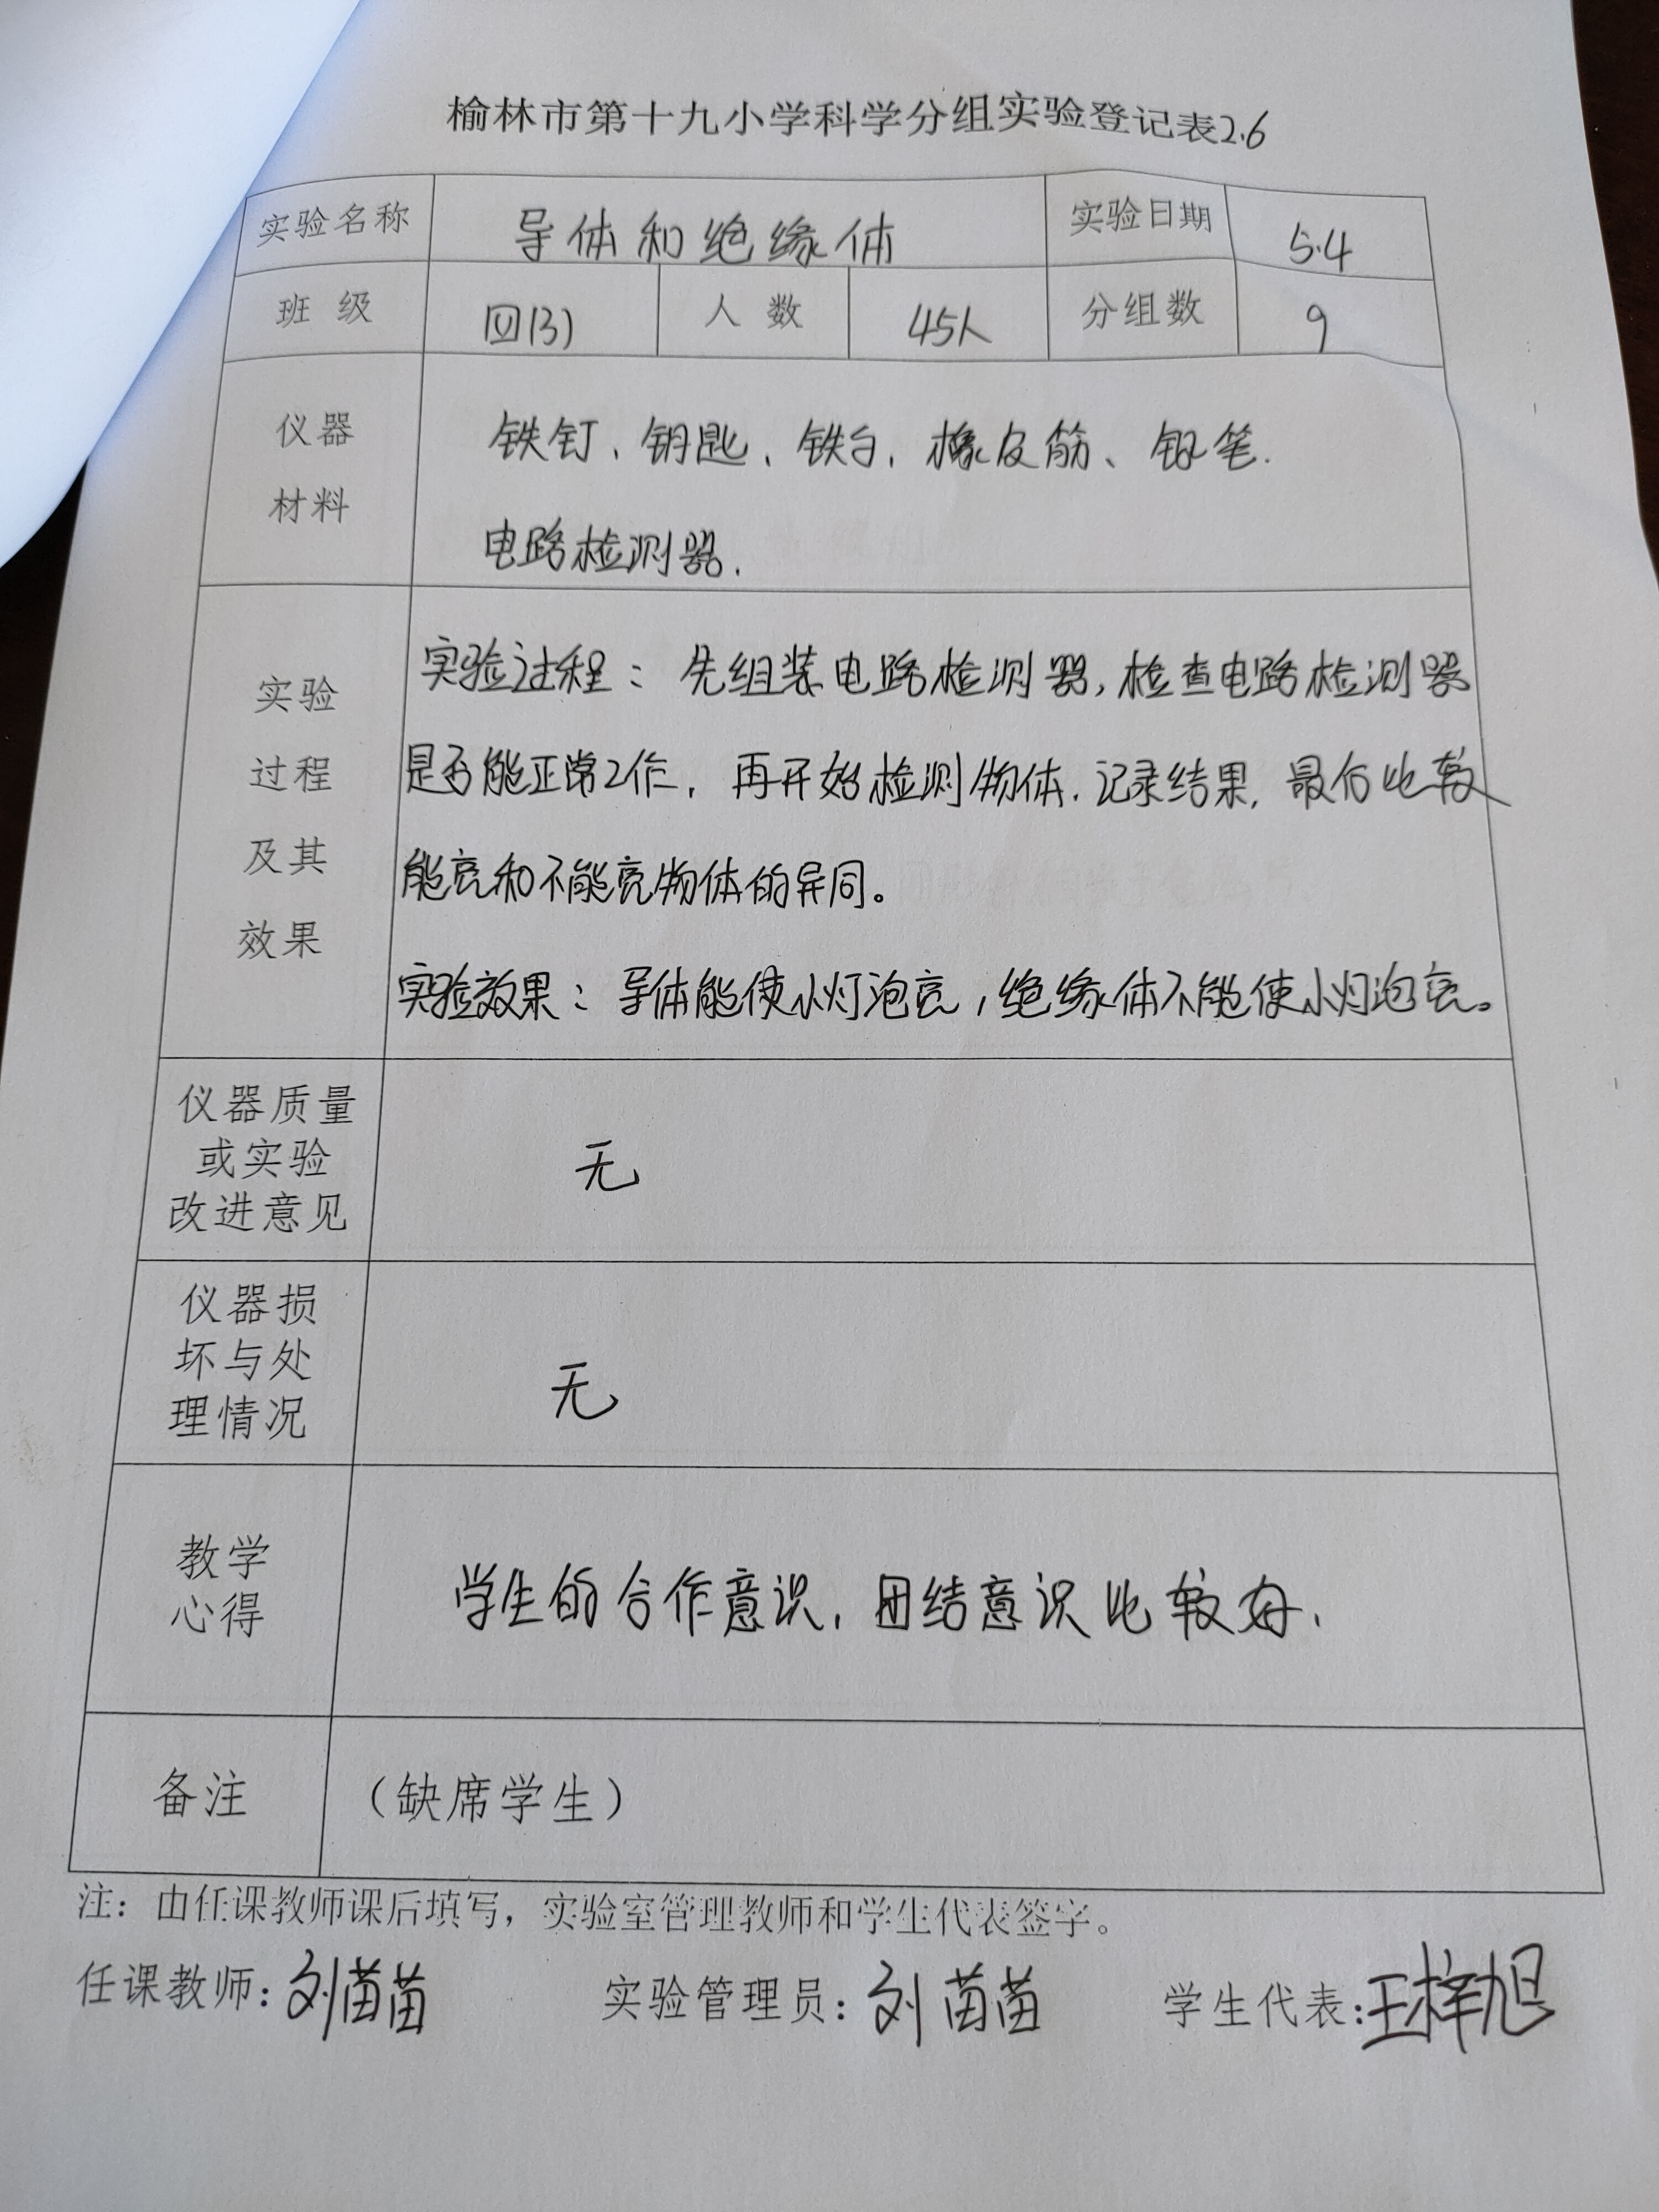 榆林市第十九小学科学分组实验登记表2.6
实验名称 导体和绝缘体 实验日期 5.4
班 级 四(3) 人 数 45人 分组数 9
仪器
材料
铁钉、钥匙、铁勺、橡皮筋、钢笔.
电路检测器.
实验
过程
及其
效果
实验过程：先组装电路检测器,检查电路检测器
是否能正常工作,再开始检测物体.记录结果,最后比较
能亮和不能亮物体的异同。
实验效果：导体能使小灯泡亮,绝缘体不能使小灯泡亮。
仪器质量
或实验
改进意见
无
仪器损
坏与处
理情况
无
教学
心得
学生的合作意识,团结意识比较好.
备注 （缺席学生）
注：由任课教师课后填写，实验室管理教师和学生代表签字。
任课教师:刘苗苗 实验管理员:刘苗苗 学生代表:王梓旭